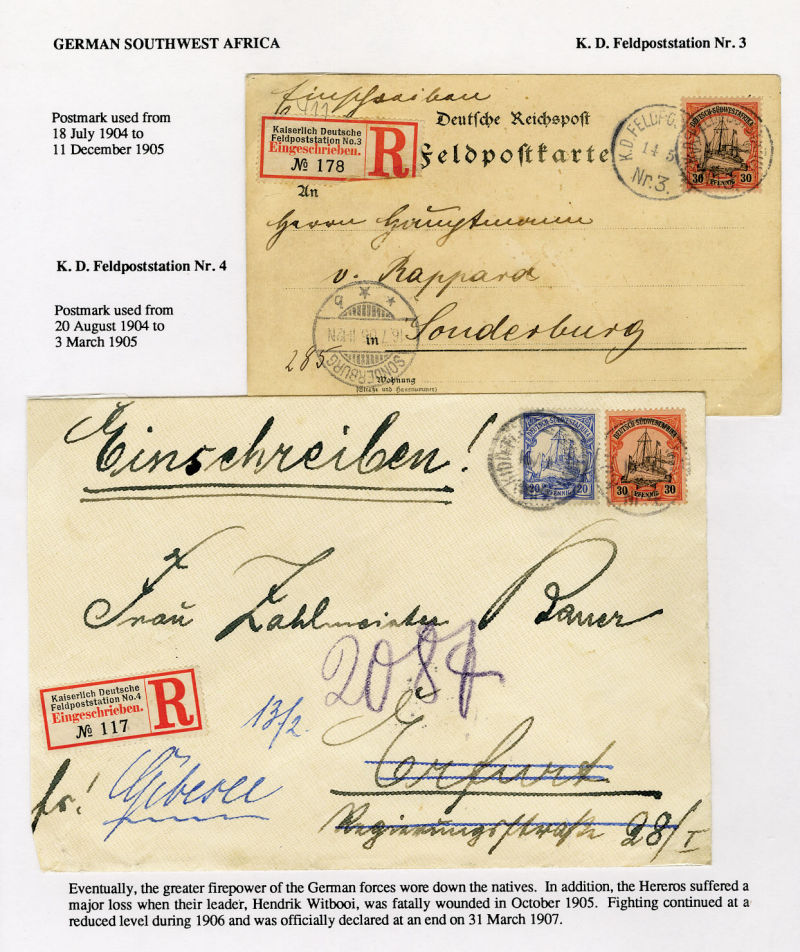 GERMAN SOUTHWEST AFRICA
K. D. Feldpoststation Nr. 3
Postmark used from
18 July 1904 to
11 December 1905
Einschreiben
Deutsche Reichspost
Feldpostkarte
Kaiserlich Deutsche
Feldpoststation No.3
Eingeschrieben.
№ 178
R
K.D. FELDPO
14 5
Nr. 3.
DEUTSCH-SÜDWESTAFRIKA
30 PFENNIG 30
An
Herrn Hauptmann
v. Rappard
in Sonderburg
285
SONDERBURG
Wohnung
(Straße und Hausnummer)
K. D. Feldpoststation Nr. 4
Postmark used from
20 August 1904 to
3 March 1905
Einschreiben!
DEUTSCH-SÜDWESTAFRIKA
20 PFENNIG 20
DEUTSCH-SÜDWESTAFRIKA
30 PFENNIG 30
Frau Zahlmeister Bauer
2087
Kaiserlich Deutsche
Feldpoststation No.4
Eingeschrieben.
№ 117
R
13/2.
Erfurt
fr! Gebesee
Regierungsstraße 28/I
Eventually, the greater firepower of the German forces wore down the natives. In addition, the Hereros suffered a
major loss when their leader, Hendrik Witbooi, was fatally wounded in October 1905. Fighting continued at a
reduced level during 1906 and was officially declared at an end on 31 March 1907.